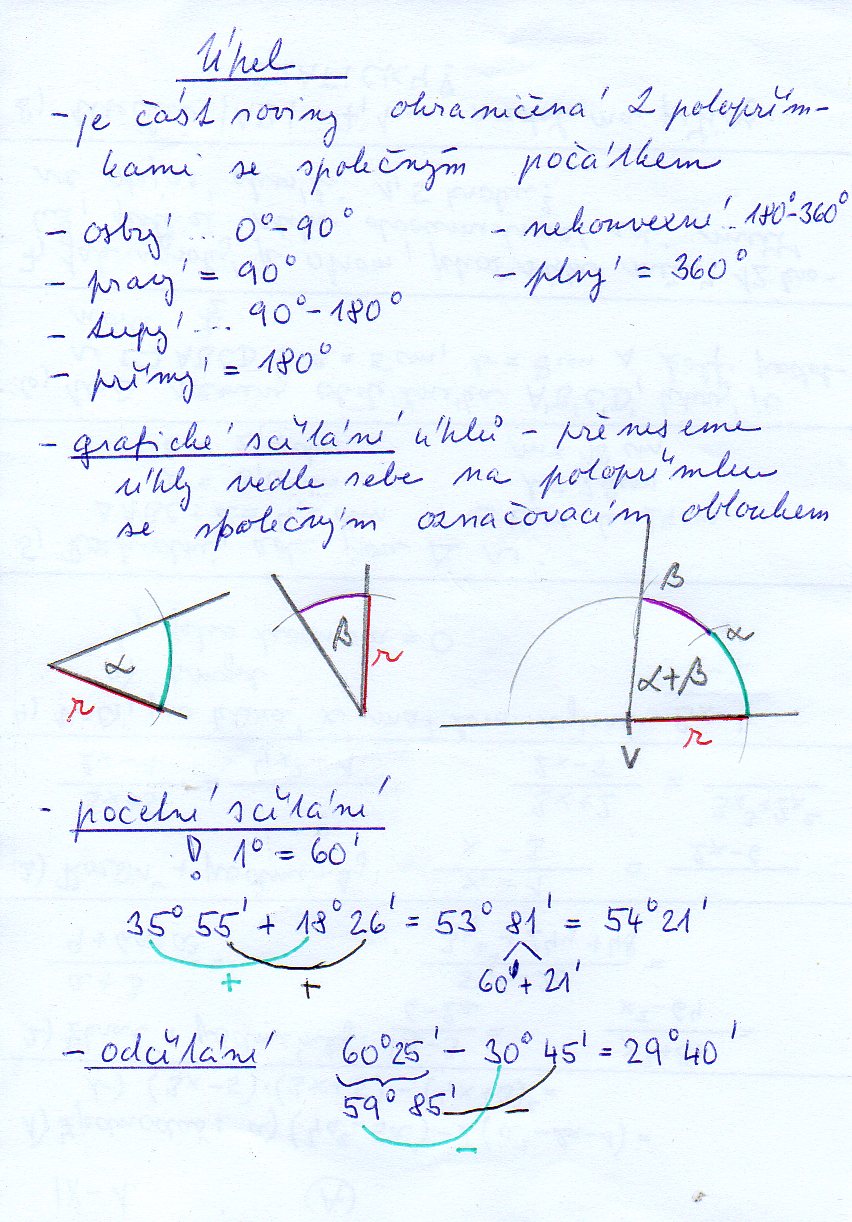 Úhel
- je část roviny ohraničená 2 polopřím-
kami se společným počátkem
- ostrý ... 0°-90°
- pravý = 90°
- tupý ... 90°-180°
- přímý = 180°
- nekonvexní .. 180°-360°
- plný = 360°
- grafické sčítání úhlů - přeneseme
úhly vedle sebe na polopřímku
se společným označovacím obloukem
α
r
β
r
β
α
α+β
V
r
- početní sčítání
! 1° = 60'
35° 55' + 18° 26' = 53° 81' = 54° 21'
+ +
60' + 21'
- odčítání 60°25' - 30° 45' = 29° 40'
59° 85'
-
-